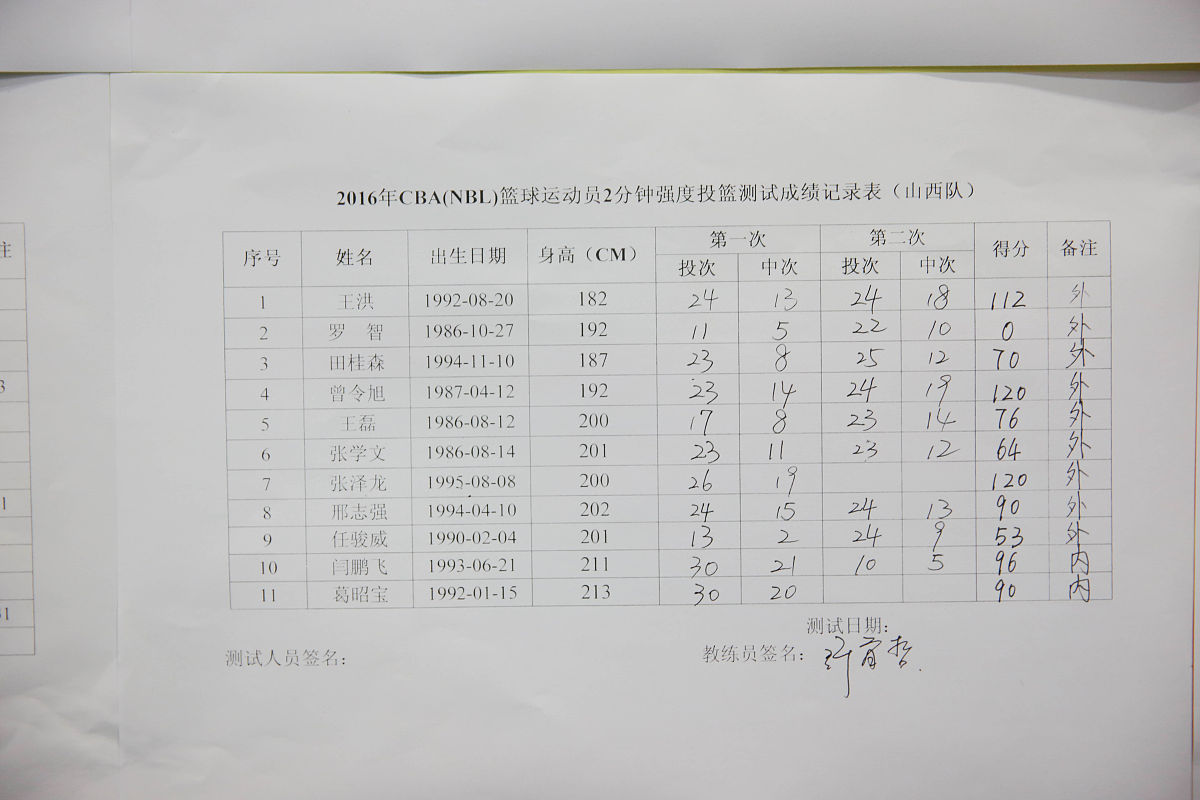 2016年CBA(NBL)篮球运动员2分钟强度投篮测试成绩记录表（山西队）
序号 姓名 出生日期 身高（CM） 第一次 第二次 得分 备注
投次 中次 投次 中次
1 王洪 1992-08-20 182 24 13 24 18 112 外
2 罗 智 1986-10-27 192 11 5 22 10 0 外
3 田桂森 1994-11-10 187 23 8 25 12 70 外
4 曾令旭 1987-04-12 192 23 14 24 19 120 外
5 王磊 1986-08-12 200 17 8 23 14 76 外
6 张学文 1986-08-14 201 23 11 23 12 64 外
7 张泽龙 1995-08-08 200 26 19 120 外
8 邢志强 1994-04-10 202 24 15 24 13 90 外
9 任骏威 1990-02-04 201 13 2 24 9 53 外
10 闫鹏飞 1993-06-21 211 30 21 10 5 96 内
11 葛昭宝 1992-01-15 213 30 20 90 内
测试日期：
测试人员签名： 教练员签名：
注
3
1
31